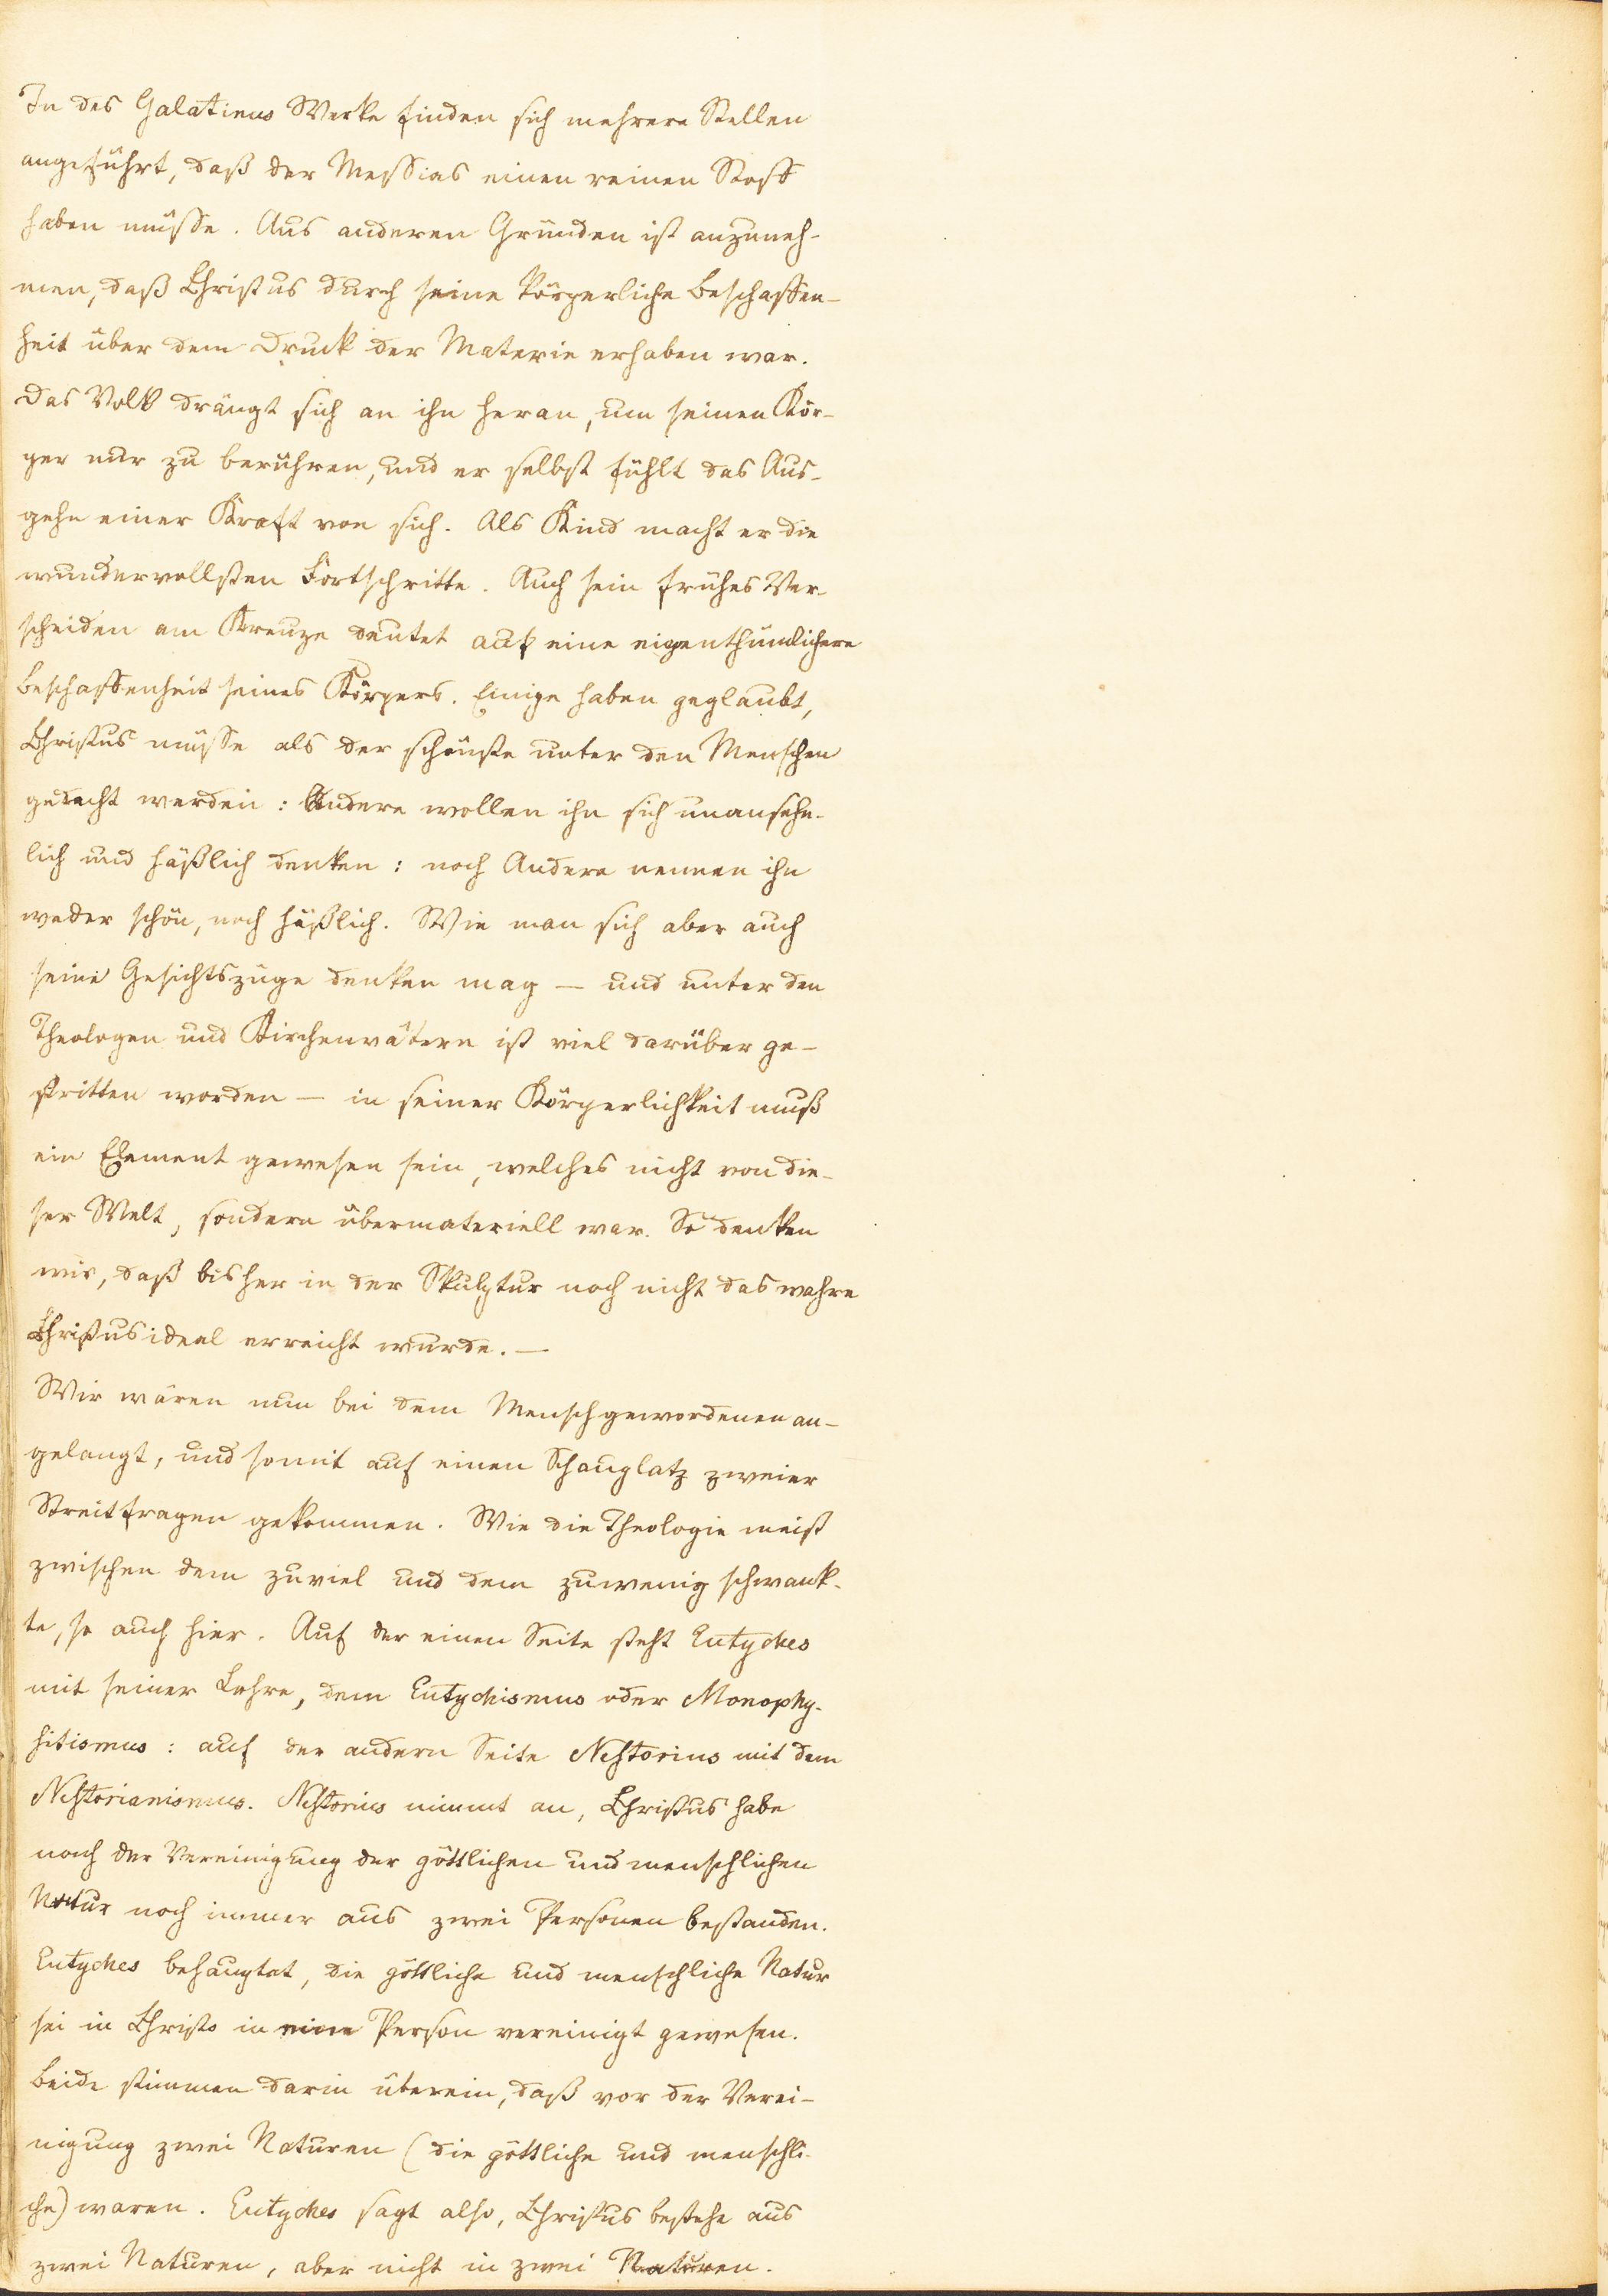 In des Galatinus Werke finden sich mehrere Stellen
angeführt, daß der Messias einen reinen Stoff
haben müsse. Aus anderen Gründen ist anzuneh-
men, daß Christus durch seine körperliche Beschaffen-
heit über dem Druck der Materie erhaben war.
Das Volk drängt sich an ihn heran, um seinen Kör-
per nur zu berühren, und er selbst fühlt das Aus-
gehn einer Kraft von sich. Als Kind macht er die
wundervollsten Fortschritte. Auch sein frühes Ver-
scheiden am Kreuze deutet auf eine eigenthümlichere
Beschaffenheit seines Körpers. Einige haben geglaubt,
Christus müsse als der schönste unter den Menschen
gedacht werden: Andere wollen ihn sich unansehn-
lich und häßlich denken: noch Andere nennen ihn
weder schön, noch häßlich. Wie man sich aber auch
seine Gesichtszüge denken mag – und unter den
Theologen und Kirchenvätern ist viel darüber ge-
stritten worden – in seiner Körperlichkeit muß
ein Element gewesen sein, welches nicht von die-
ser Welt, sondern übermateriell war. So denken
wir, daß bisher in der Skulptur noch nicht das wahre
Christusideal erreicht wurde. –
Wir wären nun bei dem Menschgewordenen an-
gelangt, und somit auf einen Schauplatz zweier
Streitfragen gekommen. Wie die Theologie meist
zwischen dem zuviel und dem zuwenig schwank-
te, so auch hier. Auf der einen Seite steht Eutyches
mit seiner Lehre, dem Eutychismus oder Monophy-
sitismus: auf der andern Seite Nestorius mit dem
Nestorianismus. Nestorius nimmt an, Christus habe
nach der Vereinigung der göttlichen und menschlichen
Natur noch immer aus zwei Personen bestanden.
Eutyches behauptet, die göttliche und menschliche Natur
sei in Christo in eine Person vereinigt gewesen.
Beide stimmen darin überein, daß vor der Verei-
nigung zwei Naturen (die göttliche und menschli-
che) waren. Eutyches sagt also, Christus bestehe aus
zwei Naturen, aber nicht in zwei Naturen.